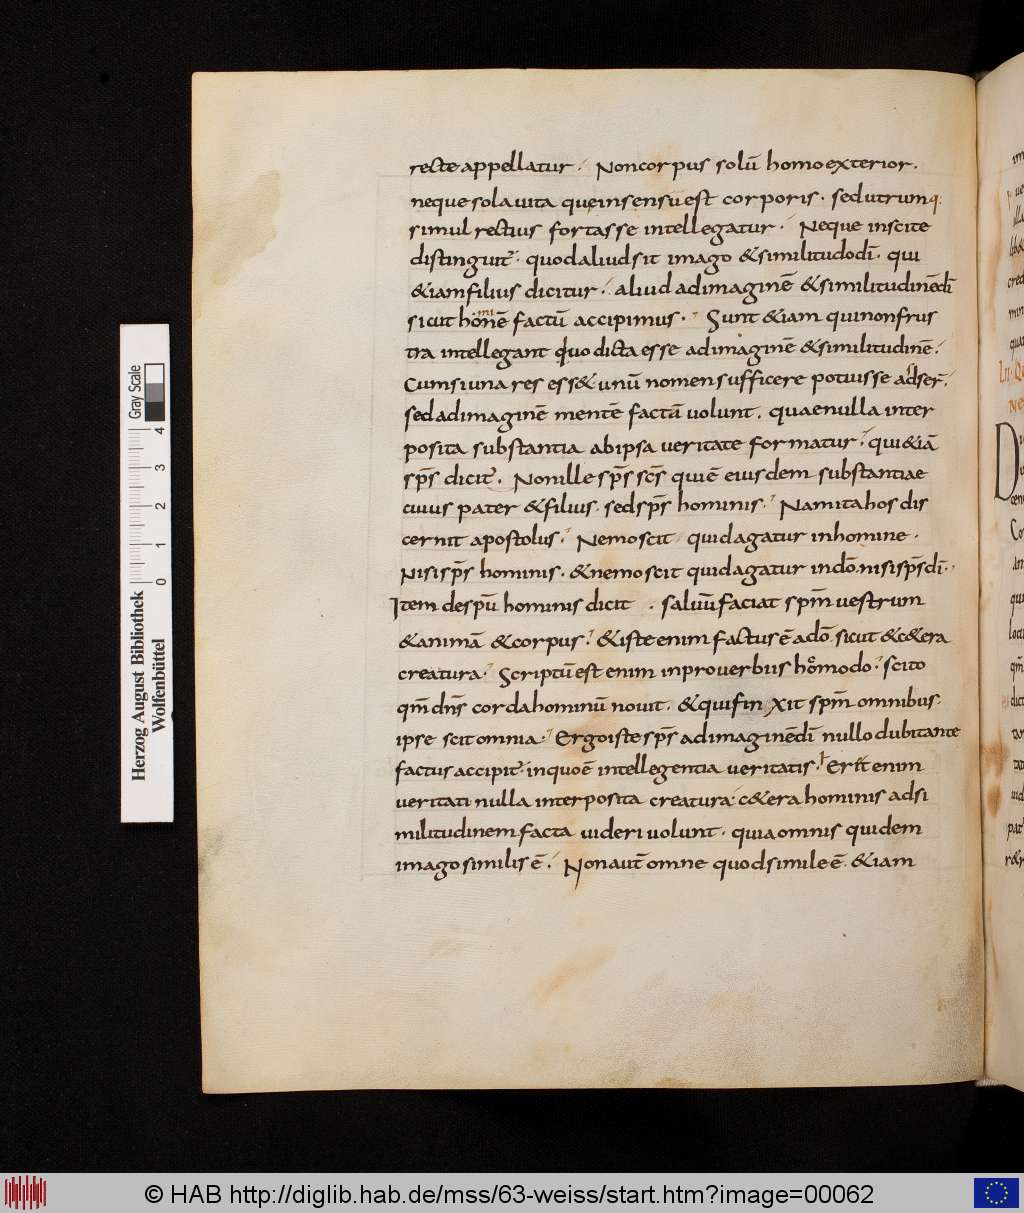 recte appellatur. Non corpus solū homo exterior.
neque sola uita que in sensu est corporis. sed utrumq:
simul rectius fortasse intellegatur. Neque inscite
distinguit. quod aliud sit imago & similitudo dī. qui
& iam filius dicitur. aliud ad imaginē & similitudinē dī
sicut honē factū accipimus. Sunt & iam qui non frus
tra intellegant quo dicta esse ad imaginē & similitudinē.
Cum si una res ess& unū nomen sufficere potuisse adser̄.
sed ad imaginē mentē factā uolunt. quae nulla inter
posita substantia ab ipsa ueritate formatur. qui & iā
sp̄s dicit. Non ille sp̄s sc̄s qui ē eiusdem substantiae
cuius pater & filius. sed sp̄s hominis. Nam ita hos dis
cernit apostolus. Nemo scit quid agatur in homine.
Nisi sp̄s hominis. & nemo scit quid agatur in dō. nisi sp̄s dī.
Item de spū hominis dicit. saluū faciat spm̄ uestrum
& animā & corpus. & iste enim factus ē a dō. sicut & c&era
creatura. Scriptū est enim in prouerbiis hōmodo. scito
qm̄ dn̄s corda hominū nouit. & qui finxit spm̄ omnibus.
ipse scit omnia. Ergo iste sp̄s ad imaginē dī nullo dubitante
factus accipit. in quo ē intellegentia ueritatis. enim
ueritati nulla interposita creatura. c&era hominis ad si
militudinem facta uideri uolunt. quia omnis quidem
imago similis ē. Non aut̄ omne quod simile ē. & iam
Herzog August Bibliothek
Wolfenbüttel
Gray Scale
0 1 2 3 4
© HAB http://diglib.hab.de/mss/63-weiss/start.htm?image=00062